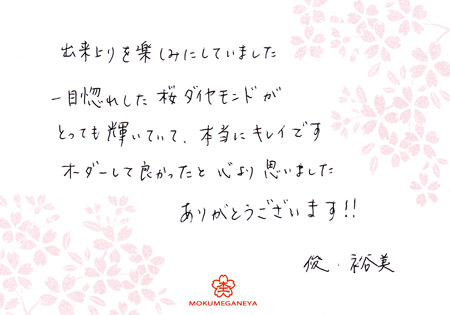 出来上りを楽しみにしていました
一目惚れした桜ダイヤモンドが
とっても輝いていて、本当にキレイです
オーダーして良かったと心より思いました
ありがとうございます!!
俊・裕美
MOKUMEGANEYA